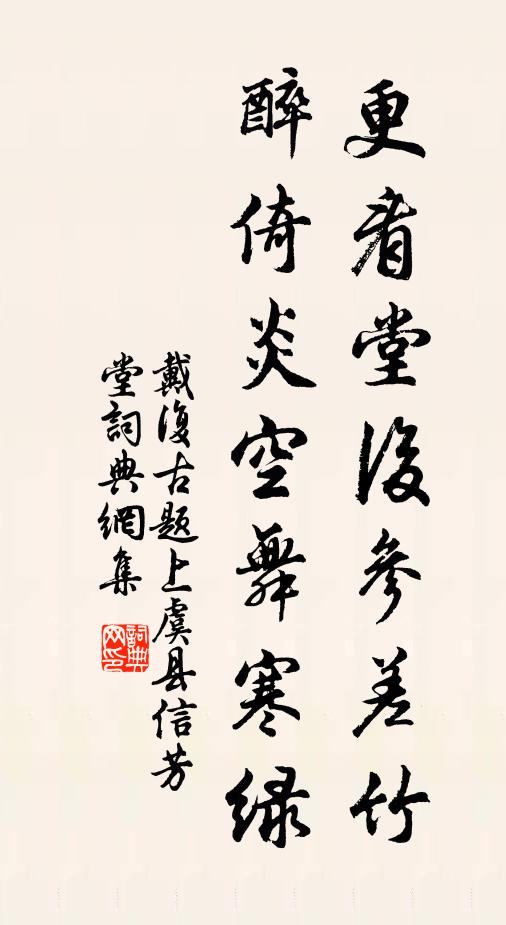 更看堂後參差竹
醉倚炎空舞寒綠
戴復古题上虞县信芳
堂詞典網集
詞典網印